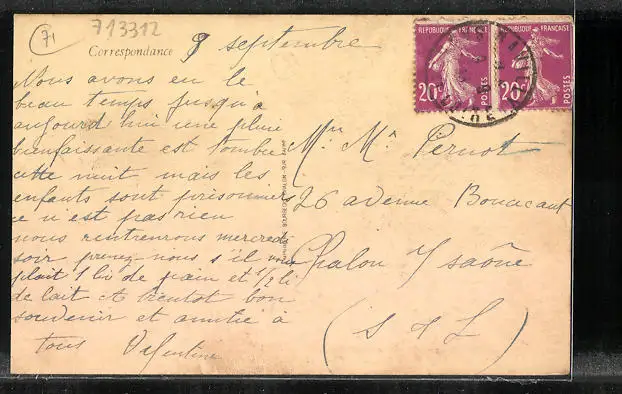 71
713312
Correspondance
8 septembre
Nous avons eu le
beau temps jusqu'à
aujourd hui une pluie
bienfaissante est tombée
cette nuit mais les
enfants sont prisonniers
ce n'est pas rien
nous rentrerons mercredi
soir prenez nous s'il vous
plait 1 liv de pain et 1/2 li
de lait A bientot bon
souvenir et amitié à
tous Valentine
REPUBLIQUE FRANÇAISE
20c
POSTES
REPUBLIQUE FRANÇAISE
20c
POSTES
Mr Me Pernot
26 avenue Boucicaut
Chalon s/ saône
(S & L)